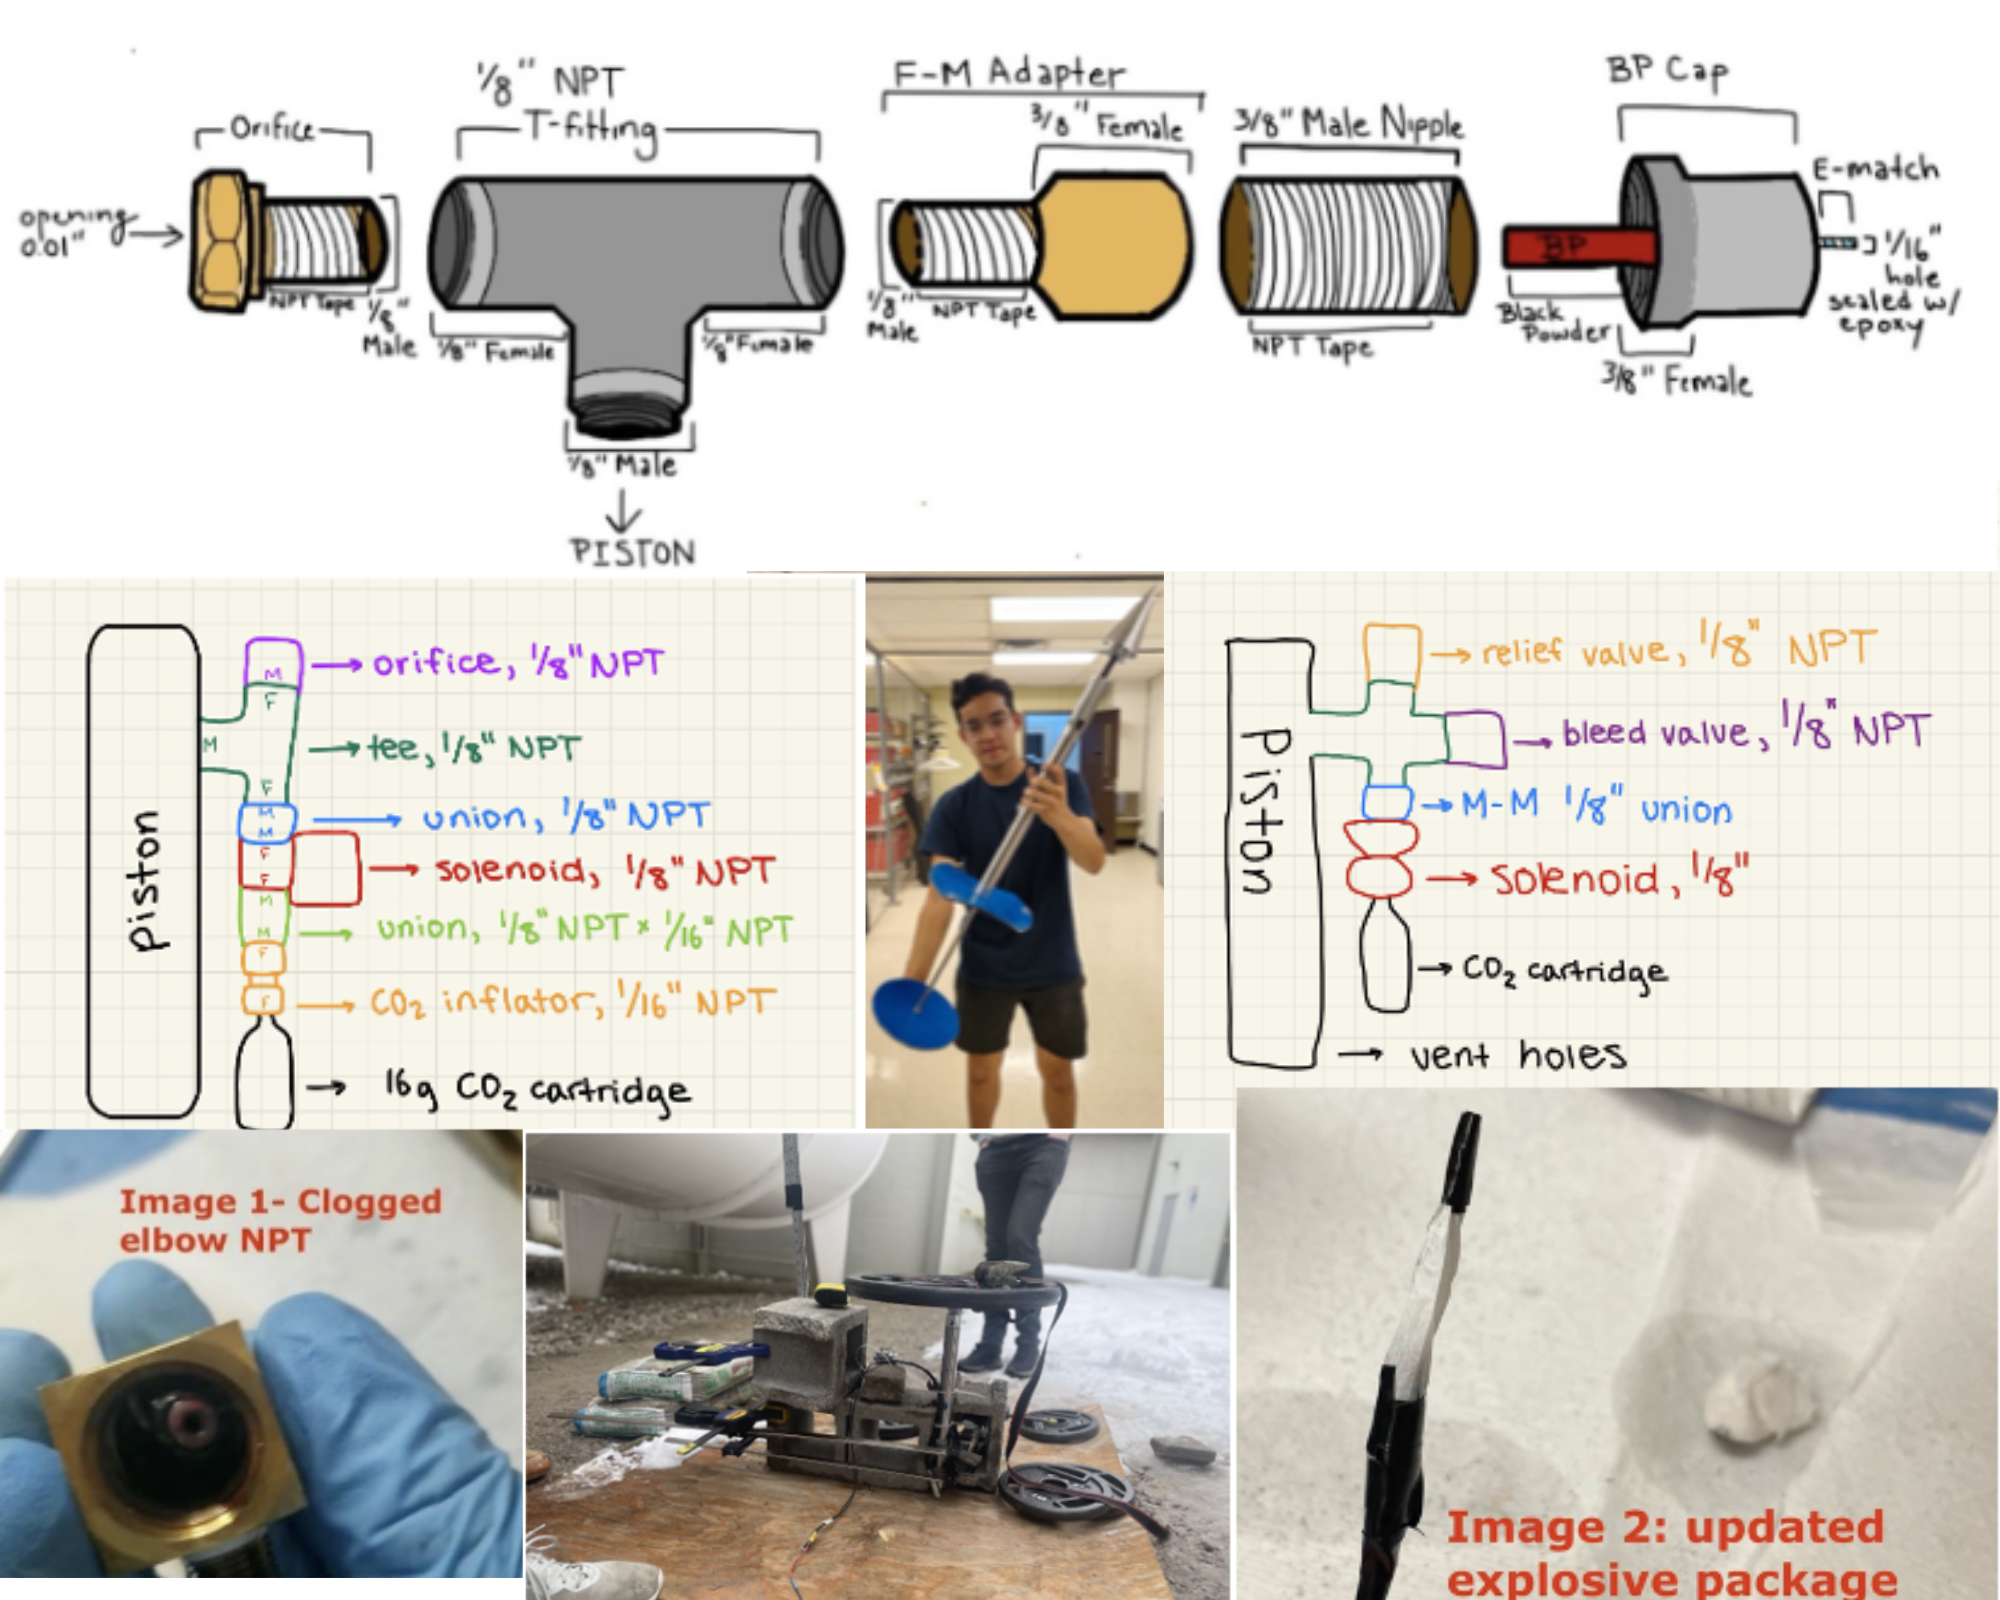 1/8" NPT
T-fitting
Orifice
opening
0.01"
NPT Tape
1/8"
Male
1/8" Female
1/8" Female
1/8" Male
PISTON
F-M Adapter
3/8" Female
1/8"
Male
NPT Tape
3/8" Male Nipple
NPT Tape
BP Cap
E-match
BP
1/16"
hole
sealed w/
epoxy
Black
Powder
3/8" Female
Piston
M
F
M
F
M
M
F
F
M
M
F
F
orifice, 1/8" NPT
tee, 1/8" NPT
union, 1/8" NPT
solenoid, 1/8" NPT
union, 1/8" NPT × 1/16" NPT
CO2 inflator, 1/16" NPT
16g CO2 cartridge
Piston
relief valve, 1/8" NPT
bleed valve, 1/8" NPT
M-M 1/8" union
solenoid, 1/8"
CO2 cartridge
vent holes
Image 1- Clogged
elbow NPT
Image 2: updated
explosive package